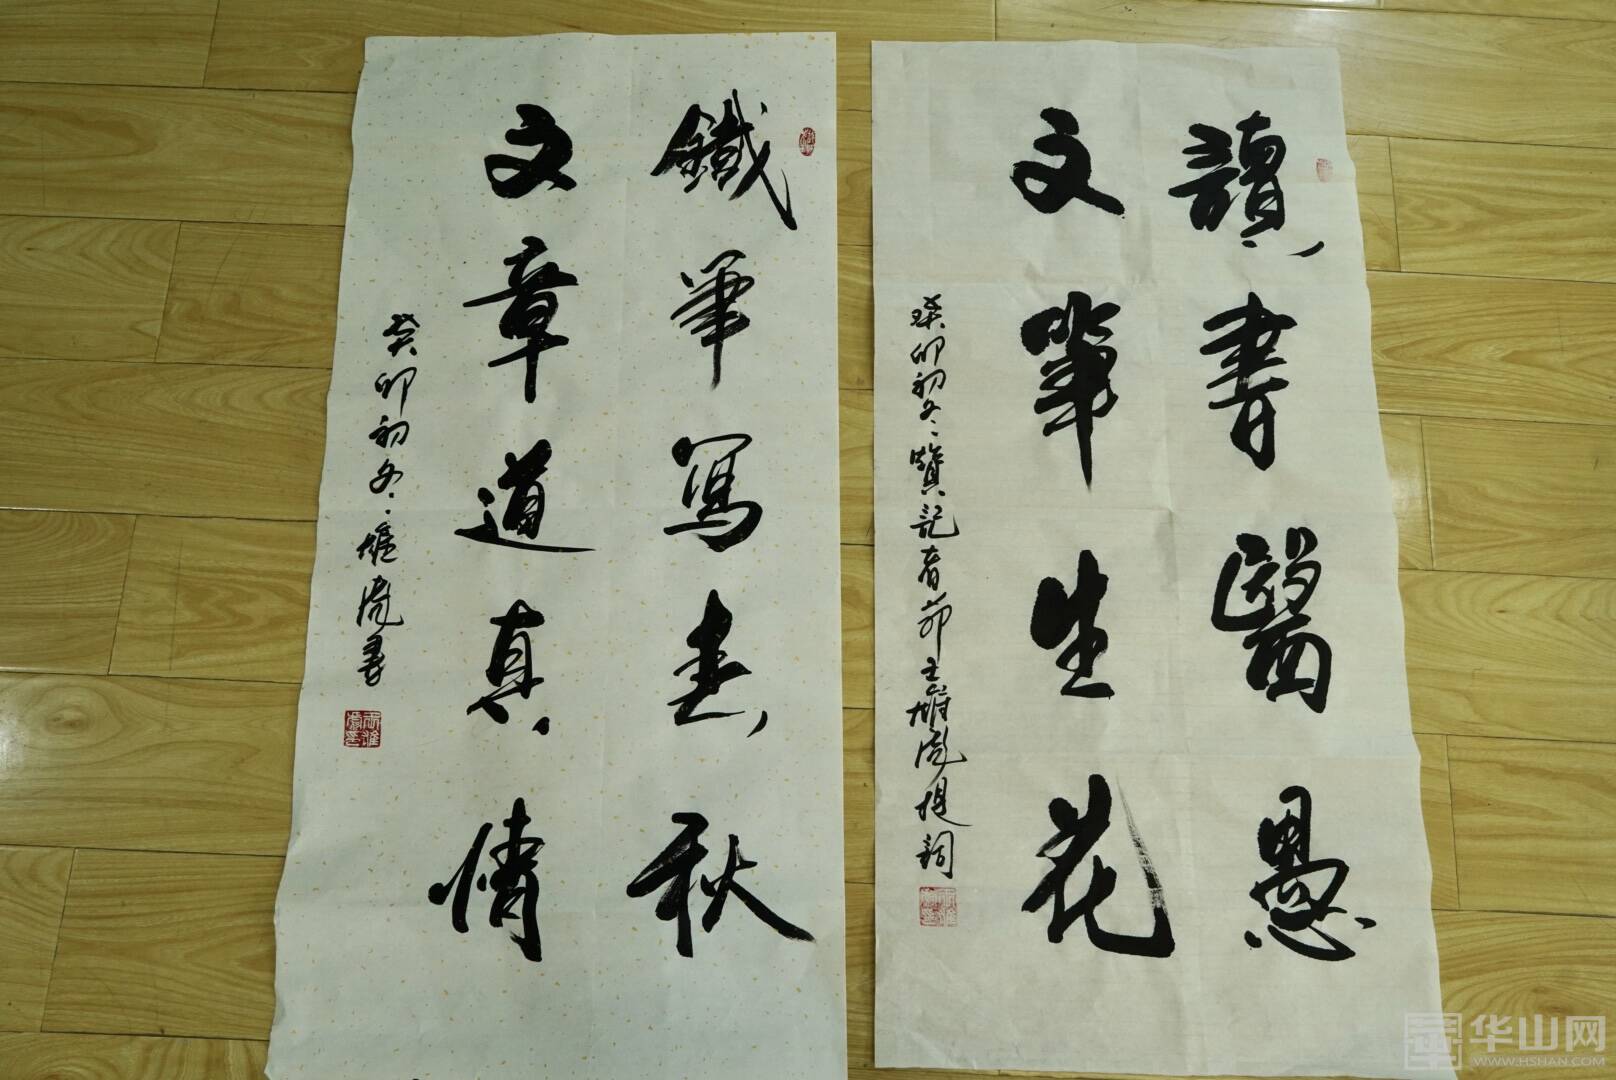 讀書醫愚
文筆生花
癸卯初冬賛記者節王雄彪提詞
鐵筆寫春秋
文章道真情
癸卯初冬雄彪書
华山网
WWW.HSHAN.COM